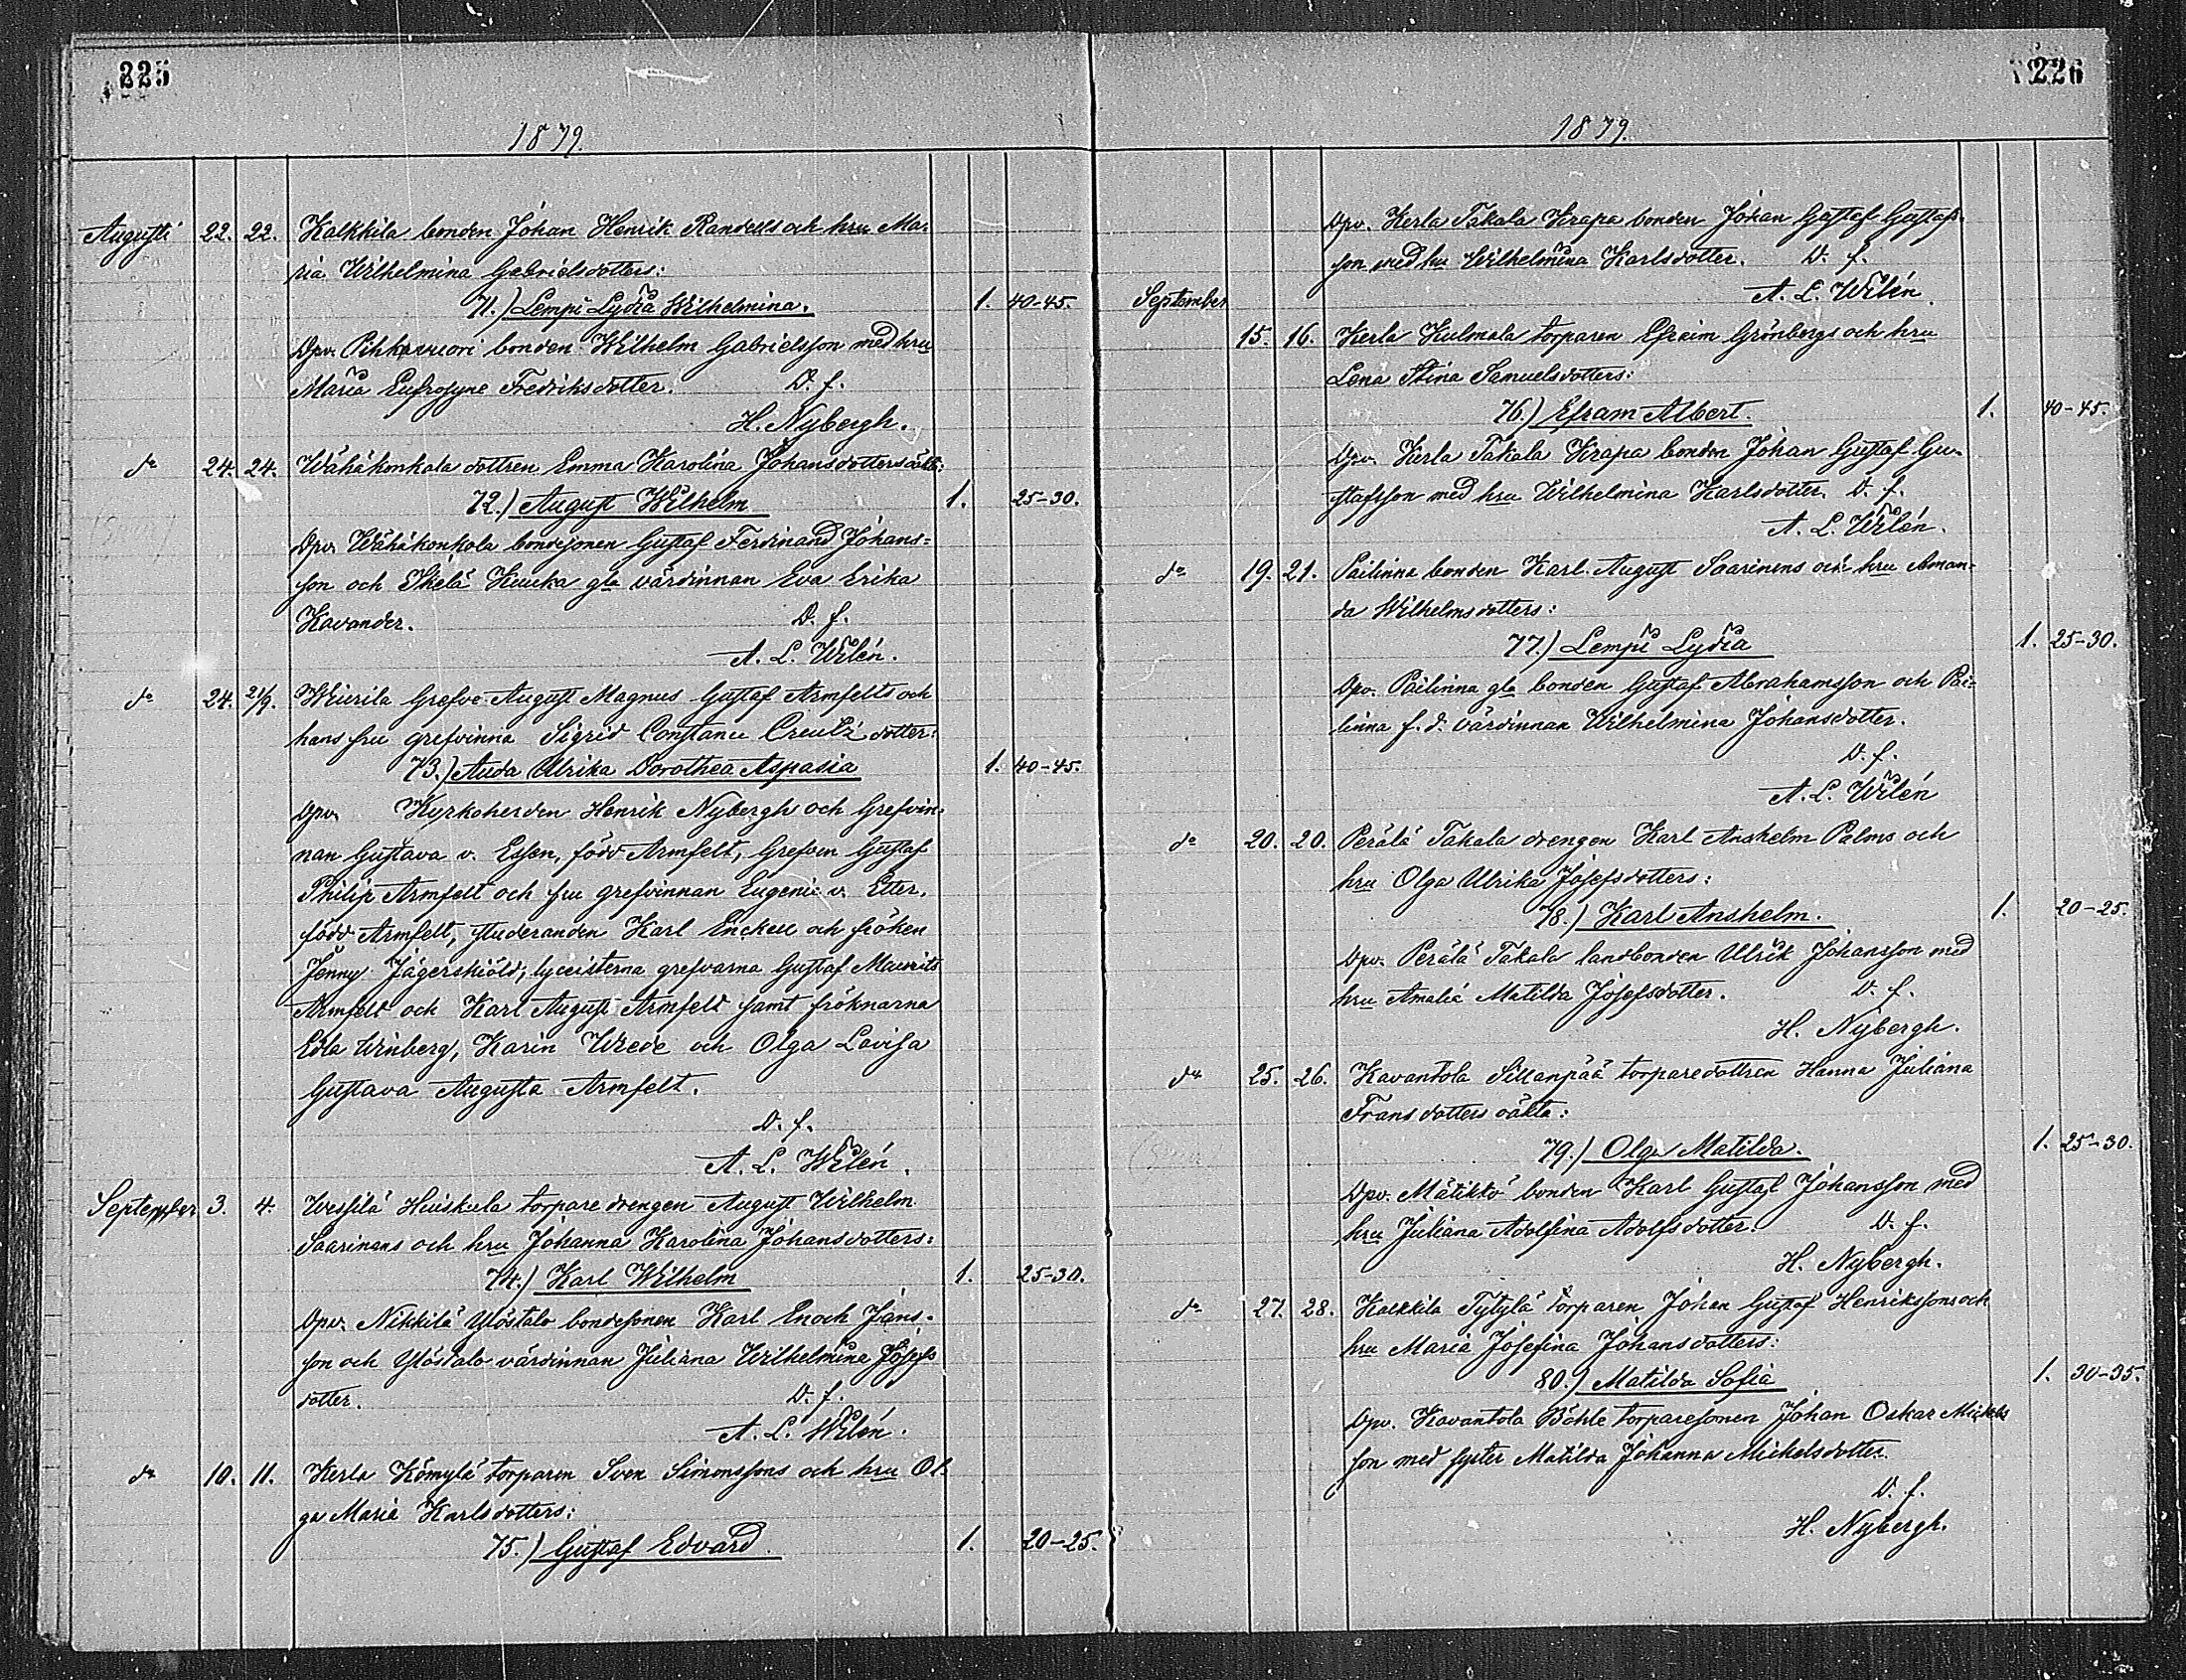 225
1879.
Augusti 22. 22. Kalkkila bonden Johan Henrik Randells och hru Ma-
ria Wilhelmina Gabrielsdotters:
71.) Lempi Lydia Wilhelmina. 1. 40-45.
Dpv. Pihkavuori bonden Wilhelm Gabrielsson med hru
Maria Eufrosyne Fredriksdotter. D. f.
H. Nybergh.
do 24. 24. Wähäkonkala dottren Emma Karolina Johansdotters oäkta:
72.) August Wilhelm 1. 25-30.
Dpv. Wähäkonkola bondesonen Gustaf Ferdinand Johans=
son och Skelä Kuuka gla värdinnan Eva Erika
Kavander. D. f.
A. L. Wilén.
do 24. 21/9. Wiurila Grefve August Magnus Gustaf Armfelts och
hans fru grefvinna Sigrid Constance Creutz' dotter:
73.) Auda Ulrika Dorothea Aspasia 1. 40-45.
Dpv. Kyrkoherden Henrik Nybergh och Grefvin-
nan Gustava v. Essen, född Armfelt, Grefven Gustaf
Philip Armfelt och fru grefvinnan Eugenie v. Etter,
född Armfelt, studeranden Karl Enckell och fröken
Jenny Jägerskiöld, lyceisterna grefvarna Gustaf Maurits
Armfelt och Karl August Armfelt samt fröknarna
Edla Winberg, Karin Wrede och Olga Lovisa
Gustava Augusta Armfelt.
D. f.
A. L. Wilén.
September 3. 4. Wessilä Huiskula torpare drengen August Wilhelm
Saarinens och hru Johanna Karolina Johansdotters:
74.) Karl Wilhelm 1. 25-30.
Dpv. Nikkilä Ylöstalo bondesonen Karl Enoch Jans-
son och Ylöstalo värdinnan Juliana Wilhelmina Josefs
dotter. D. f.
A. L. Wilén.
do 10. 11. Kerla Kömylä torparen Sven Simonssons och hru Ol-
ga Maria Karlsdotters:
75.) Gustaf Edvard. 1. 20-25.
226
1879.
Dpv. Kerla Takala Krapa bonden Johan Gustaf Gustafs-
son med hu Wilhelmina Karlsdotter. D. f.
A. L. Wilén.
September
15. 16. Kerla Kulmala torparen Efraim Grönbergs och hru
Lena Stina Samuelsdotters:
76.) Efram Albert. 1. 40-45.
Dpv. Kerla Takala Krapa bonden Johan Gustaf Gu-
stafsson med hru Wilhelmina Karlsdotter. D. f.
A. L. Wilén.
do 19. 21. Pailinna bonden Karl August Saarinens och hru Aman-
da Wilhelmsdotters:
77.) Lempi Lydia 1. 25-30.
Dpv. Pailinna gla bonden Gustaf Abrahamsson och Pai-
linna f. d. värdinnan Wilhelmina Johansdotter.
D. f.
A. L. Wilén
do 20. 20. Perälä Takala drengen Karl Anshelm Palms och
hru Olga Ulrika Josefsdotters:
78.) Karl Anshelm. 1. 20-25.
Dpv. Perälä Takala landbonden Ulrik Johansson med
hru Amalia Matilda Josefsdotter. D. f.
H. Nybergh.
do 25. 26. Kavantola Sillanpää torparedottren Hanna Juliana
Fransdotters oäkta:
79.) Olga Matilda. 1. 25-30.
Dpv. Mätikkö bonden Karl Gustaf Johansson med
hru Juliana Adolfina Adolfsdotter. D. f.
H. Nybergh.
do 27. 28. Kalkkila Tytylä torparen Johan Gustaf Henrikssons och
hru Maria Josefina Johansdotters:
80.) Matilda Sofia 1. 30-35.
Dpv. Kavantola Böhle torparesonen Johan Oskar Mickels
son med syster Matilda Johanna Mickelsdotter.
D. f.
H. Nybergh.